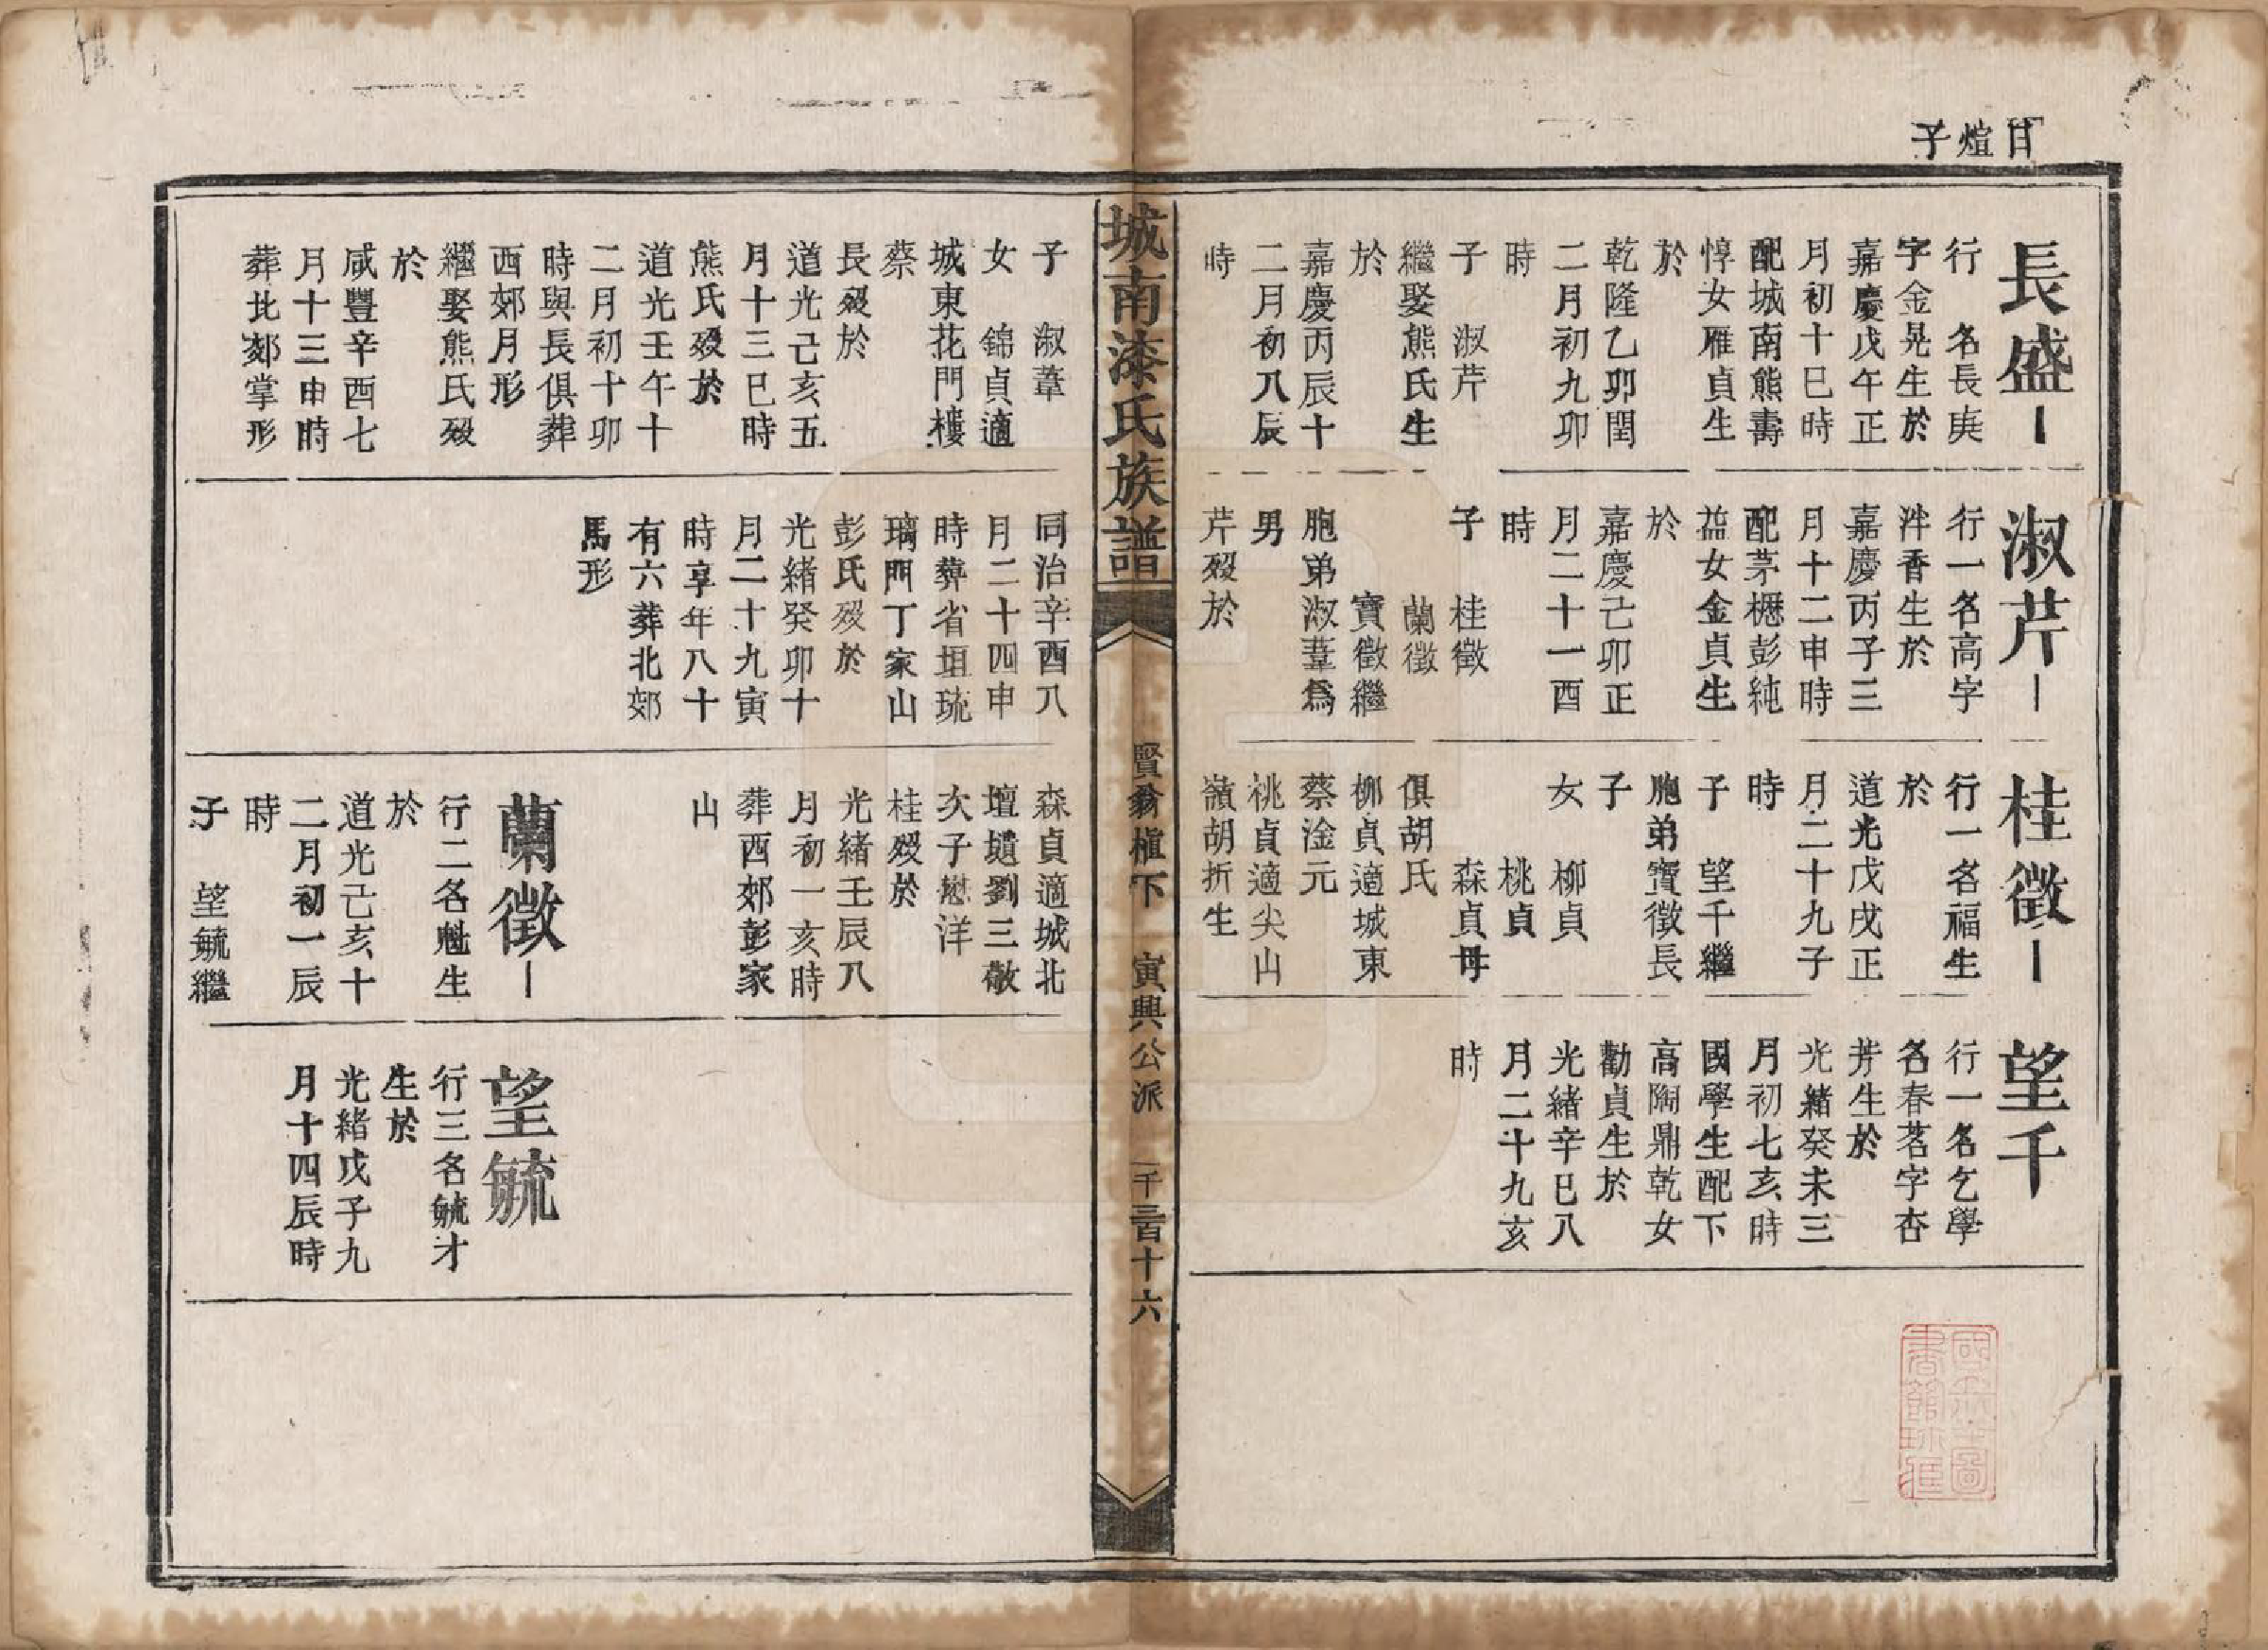 日煊子
長盛
行　名長庚
字金晃生於
嘉慶戊午正
月初十巳時
配城南熊壽
惇女雁貞生
於
乾隆乙卯閏
二月初九卯
時
子　淑芹
繼娶熊氏生
於
嘉慶丙辰十
二月初八辰
時
淑芹
行一名高字
泮香生於
嘉慶丙子三
月十二申時
配茅櫪彭純
益女金貞生
於
嘉慶己卯正
月二十一酉
時
子　桂徵
蘭徵
寶徵繼
胞弟淑葦為
男
芹歿於
桂徵
行一名福生
於
道光戊戌正
月二十九子
時
子　望千繼
胞弟寶徵長
子
女　柳貞
桃貞
森貞毋
俱胡氏
柳貞適城東
蔡淦元
桃貞適尖山
嶺胡折生
望千
行一名乞學
名春茗字杏
芳生於
光緒癸未三
月初七亥時
國學生配下
高陶鼎乾女
勸貞生於
光緒辛巳八
月二十九亥
時
城南漆氏族譜
賢翁植下　寅興公派　一千三百十六
子　淑葦
女　錦貞適
城東花門樓
蔡
長歿於
道光己亥五
月十三巳時
熊氏歿於
道光壬午十
二月初十卯
時與長俱葬
西郊月形
繼娶熊氏歿
於
咸豐辛酉七
月十三申時
葬北郊掌形
同治辛酉八
月二十四申
時葬省垣琉
璃門丁家山
彭氏歿於
光緒癸卯十
月二十九寅
時享年八十
有六葬北郊
馬形
森貞適城北
壇𡑞劉三敬
次子懋洋
桂歿於
光緒壬辰八
月初一亥時
葬西郊彭家
山
蘭徵
行二名魁生
於
道光己亥十
二月初一辰
時
子　望毓繼
望毓
行三名毓才
生於
光緒戊子九
月十四辰時